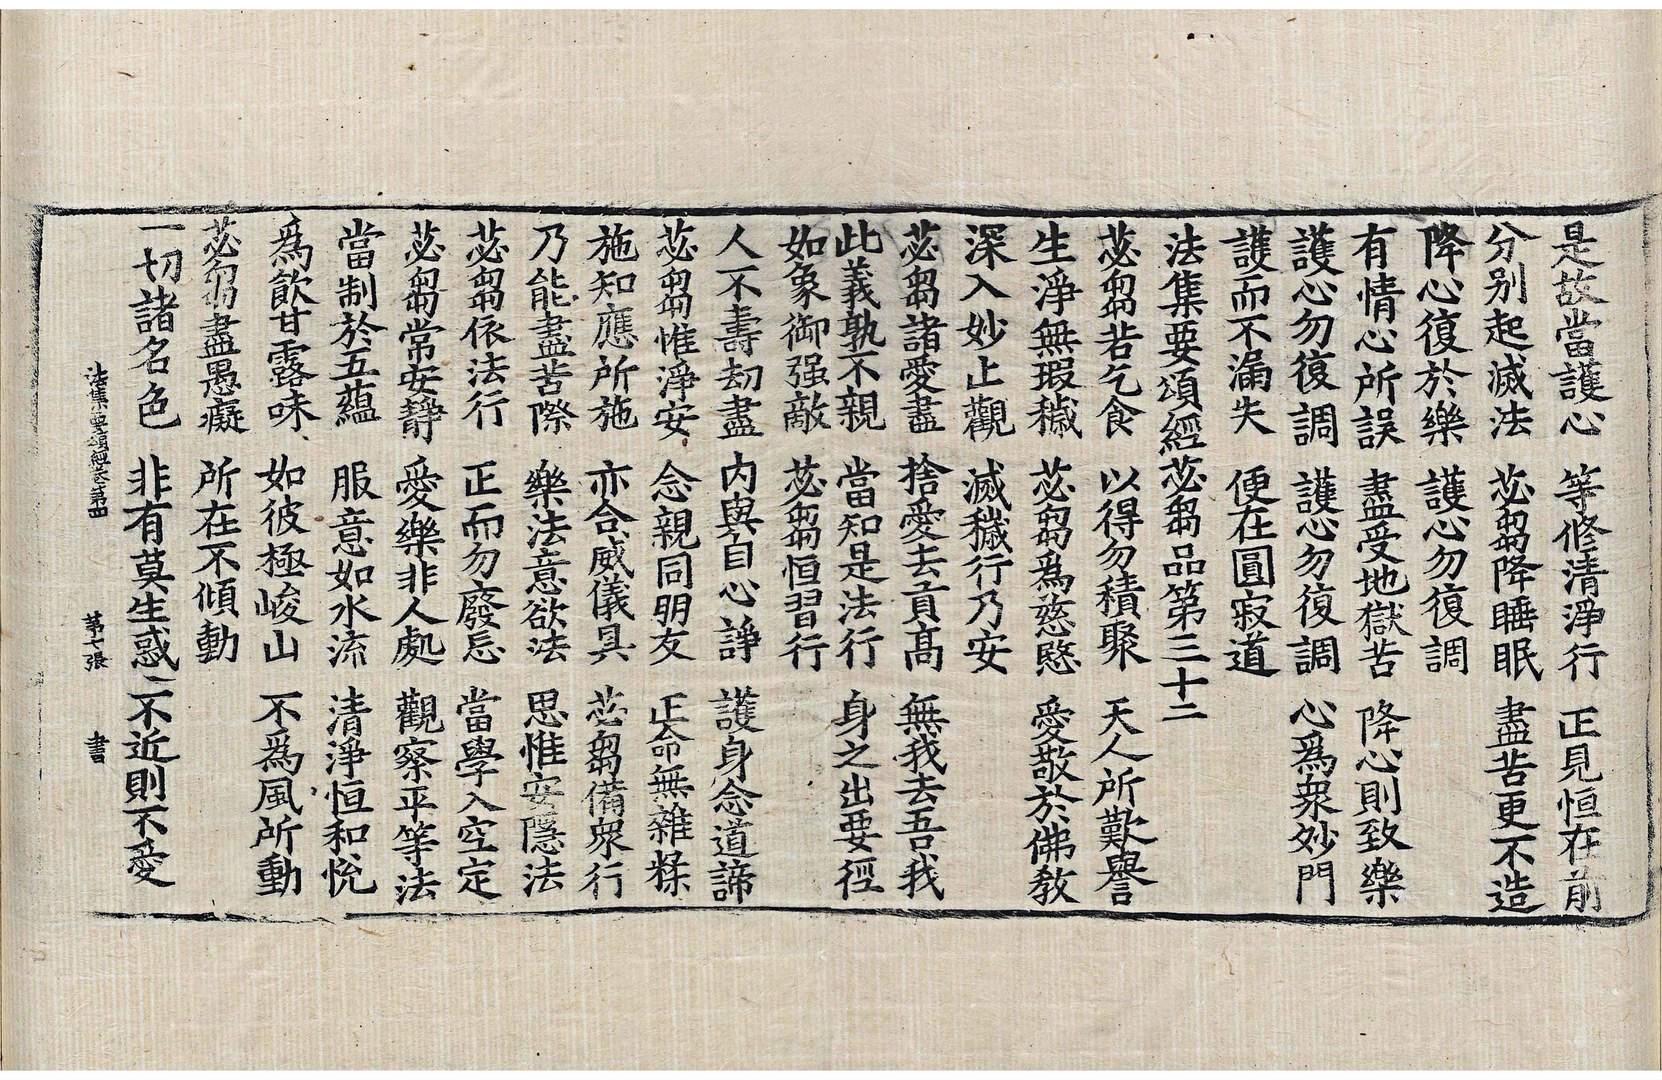 是故當護心　等修清淨行　正見恒在前
分別起滅法　苾芻降睡眠　盡苦更不造
降心復於樂　護心勿復調
有情心所誤　盡受地獄苦　降心則致樂
護心勿復調　護心勿復調　心爲衆妙門
護而不漏失　便在圓寂道
法集要頌經苾芻品第三十二
苾芻若乞食　以得勿積聚　天人所歎譽
生淨無瑕穢　苾芻爲慈愍　愛敬於佛教
深入妙止觀　滅穢行乃安
苾芻諸愛盡　捨愛去貢高　無我去吾我
此義孰不親　當知是法行　身之出要徑
如象御强敵　苾芻恒習行
人不壽劫盡　内與自心諍　護身念道諦
苾芻惟淨安　念親同朋友　正命無雜糅
施知應所施　亦令威儀具　苾芻備衆行
乃能盡苦際　樂法意欲法　思惟安隱法
苾芻依法行　正而勿廢忘　當學入空定
苾芻常安靜　愛樂非人處　觀察平等法
當制於五蘊　服意如水流　清淨恒和悅
爲飲甘露味　如彼極峻山　不爲風所動
苾芻盡愚癡　所在不傾動
一切諸名色　非有莫生惑　不近則不愛
法集要頌經卷第四　第七張　書